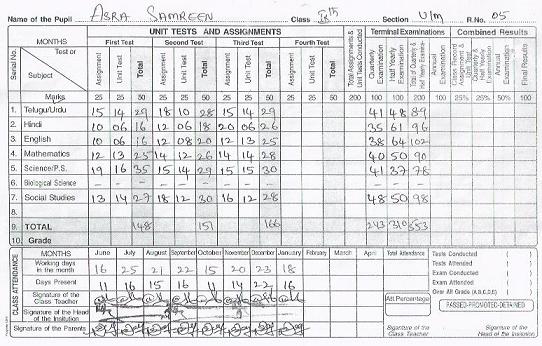 Name of the Pupil ASRA SAMREEN Class IXth Section U/m R.No. 05
UNIT TESTS AND ASSIGNMENTS Terminal Examinations Combined Results
MONTHS First Test Second Test Third Test Fourth Test
Serial No. Test or Subject Assignment Unit Test Total Assignment Unit Test Total Assignment Unit Test Total Assignment Unit Test Total Total Assignments & Unit Tests Conducted Quarterly Examination Half Yearly Examination Total of Quarterly & Half Yearly Examn. Annual Examination Class Record Assignment & Unit Test Quarterly & Half Yearly Examination Annual Examination Final Results
Marks 25 25 50 25 25 50 25 25 50 25 25 50 200 100 100 200 100 25% 25% 50% 100
1. Telugu/Urdu 15 14 29 18 10 28 15 14 29 41 48 89
2. Hindi 10 06 16 12 06 18 20 06 26 35 61 96
3. English 10 06 16 12 08 20 12 13 25 38 64 102
4. Mathematics 12 13 25 14 12 26 14 14 28 40 50 90
5. Science/P.S. 19 16 35 15 14 29 15 15 30 41 37 78
6. Biological Science - - - - - - - - - - - -
7. Social Studies 13 14 27 18 12 30 16 12 28 48 50 98
8.
9. TOTAL 148 151 166 243 310 553
10. Grade
CLASS ATTENDANCE MONTHS June July August September October November December January February March April Total Attendance Tests Conducted ( )
Working days in the month 16 25 21 22 15 20 23 18 Tests Attended ( )
Exam Conducted ( )
Days Present 11 16 15 16 11 14 22 16 Exam Attended ( )
Signature of the Class Teacher Att.Percentage Over All Grade (A,B,C,D,E) ( )
Signature of the Head of the Institution PASSED-PROMOTED-DETAINED
Signature of the Parents Signature of the Class Teacher Signature of the Head of the Institution